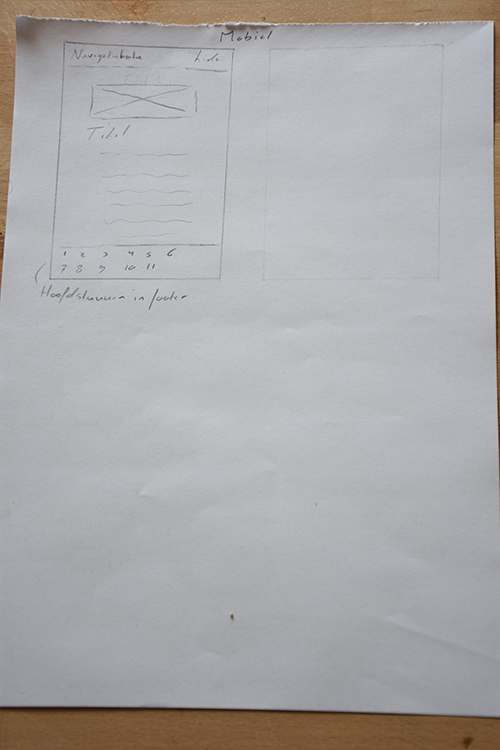 Mobiel
Navigatiebalk
Titel
1 2 3 4 5 6
7 8 9 10 11
Hoofdstukken in footer